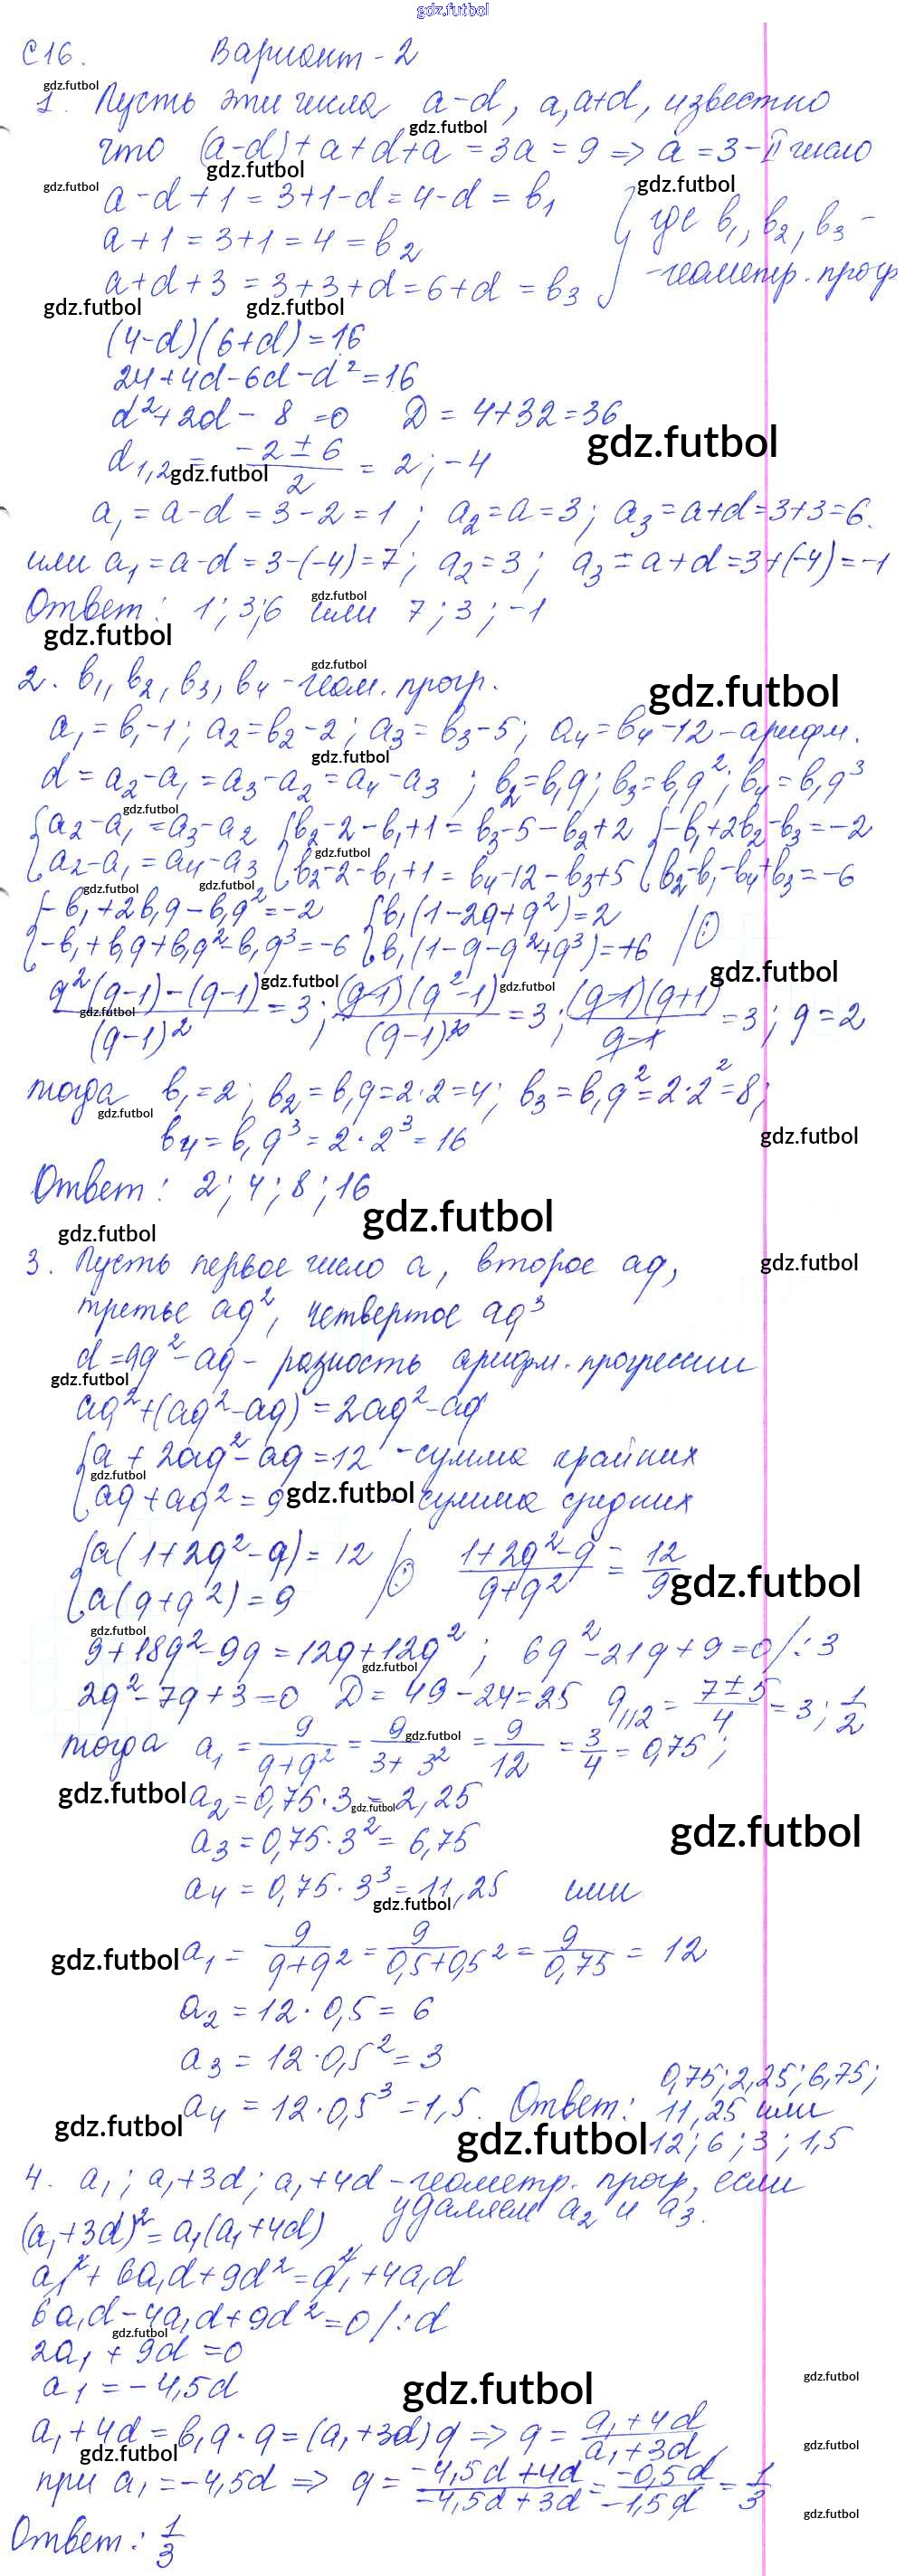 gdz.futbol
С16. Вариант-2
1. Пусть эти числа a-d, a, a+d, известно
что (a-d)+a+d+a = 3a = 9 => a = 3 - II число
a-d+1 = 3+1-d = 4-d = b₁
a+1 = 3+1 = 4 = b₂
a+d+3 = 3+3+d = 6+d = b₃
} где b₁, b₂, b₃ -
-геометр. прогр
(4-d)(6+d) = 16
24+4d-6d-d² = 16
d²+2d-8 = 0 D = 4+32 = 36
d₁,₂ = (-2±6)/2 = 2; -4
a₁ = a-d = 3-2 = 1; a₂ = a = 3; a₃ = a+d = 3+3 = 6.
или a₁ = a-d = 3-(-4) = 7; a₂ = 3; a₃ = a+d = 3+(-4) = -1
Ответ: 1; 3; 6 или 7; 3; -1
2. b₁, b₂, b₃, b₄ - геом. прогр.
a₁ = b₁-1; a₂ = b₂-2; a₃ = b₃-5; a₄ = b₄-12 - арифм.
d = a₂-a₁ = a₃-a₂ = a₄-a₃; b₂ = b₁q; b₃ = b₁q²; b₄ = b₁q³
{a₂-a₁ = a₃-a₂ {b₂-2-b₁+1 = b₃-5-b₂+2 {-b₁+2b₂-b₃ = -2
{a₂-a₁ = a₄-a₃ {b₂-2-b₁+1 = b₄-12-b₃+5 {b₂-b₁-b₄+b₃ = -6
{-b₁+2b₁q-b₁q² = -2 {b₁(1-2q+q²) = 2
{-b₁+b₁q+b₁q²-b₁q³ = -6 {b₁(1-q-q²+q³) = +6 | :
(q²(q-1)-(q-1))/(q-1)² = 3; ((q-1)(q²-1))/(q-1)² = 3; ((q-1)(q+1))/(q-1) = 3; q = 2
тогда b₁ = 2; b₂ = b₁q = 2·2 = 4; b₃ = b₁q² = 2·2² = 8;
b₄ = b₁q³ = 2·2³ = 16
Ответ: 2; 4; 8; 16
3. Пусть первое число a, второе aq,
третье aq², четвертое aq³
d = aq²-aq - разность арифм. прогрессии
aq²+(aq²-aq) = 2aq²-aq
{a+2aq²-aq = 12 - сумма крайних
{aq+aq² = 9 - сумма средних
{a(1+2q²-q) = 12
{a(q+q²) = 9 | : (1+2q²-q)/(q+q²) = 12/9
9+18q²-9q = 12q+12q²; 6q²-21q+9 = 0 |:3
2q²-7q+3 = 0 D = 49-24 = 25 q₁,₂ = (7±5)/4 = 3; 1/2
тогда a₁ = 9/(q+q²) = 9/(3+3²) = 9/12 = 3/4 = 0,75;
a₂ = 0,75·3 = 2,25
a₃ = 0,75·3² = 6,75
a₄ = 0,75·3³ = 11,25 или
a₁ = 9/(q+q²) = 9/(0,5+0,5²) = 9/0,75 = 12
a₂ = 12·0,5 = 6
a₃ = 12·0,5² = 3
a₄ = 12·0,5³ = 1,5. Ответ: 0,75; 2,25; 6,75;
11,25 или
12; 6; 3; 1,5
4. a₁; a₁+3d; a₁+4d - геометр. прогр, если
удаляем a₂ и a₃.
(a₁+3d)² = a₁(a₁+4d)
a₁²+6a₁d+9d² = a₁²+4a₁d
6a₁d-4a₁d+9d² = 0 |:d
2a₁+9d = 0
a₁ = -4,5d
a₁+4d = b₁q·q = (a₁+3d)q => q = (a₁+4d)/(a₁+3d)
при a₁ = -4,5d => q = (-4,5d+4d)/(-4,5d+3d) = (-0,5d)/(-1,5d) = 1/3
Ответ: 1/3